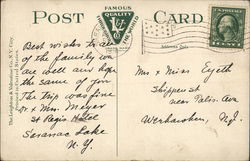 POST CARD
FAMOUS
QUALITY
THE WORLD
Address Only
The Leighton & Valentine Co., N.Y. City.
Printed in United States.
Best wishes to all
of the family we
are well and hope
the same of you
The trip was fine
Mrs. Meyer
St Regis Hotel
Saranac Lake
N.Y.
Mrs & Miss Eyeth
Shippen st
near Palis. Ave
Weehawken, N.J.